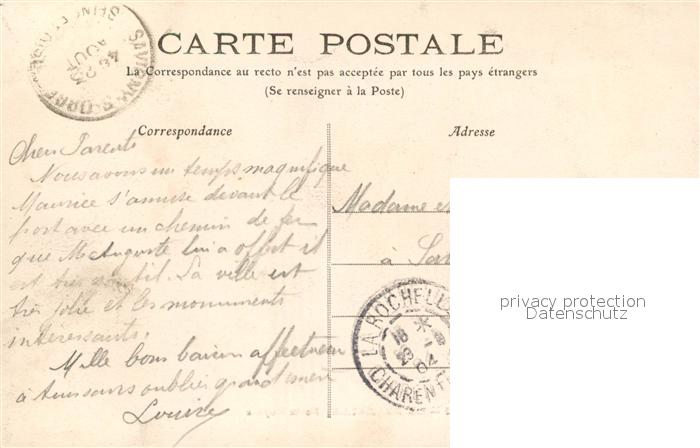 CARTE POSTALE
La Correspondance au recto n'est pas acceptée par tous les pays étrangers
(Se renseigner à la Poste)
Correspondance
Adresse
SAVIGNY-S-ORGE
AOUT
Chers Parents
Nous avons un temps magnifique
Maurice s'amuse devant le
port avec un chemin de fer
que Mr Auguste lui a offert il
est très gentil. La ville est
très jolie et les monuments
intéressants.
Mille bons baisers affectueux
à tous sans oublier grand mère
Louise
Madame et
à Sav
LA ROCHELL
CHARENTE
privacy protection
Datenschutz